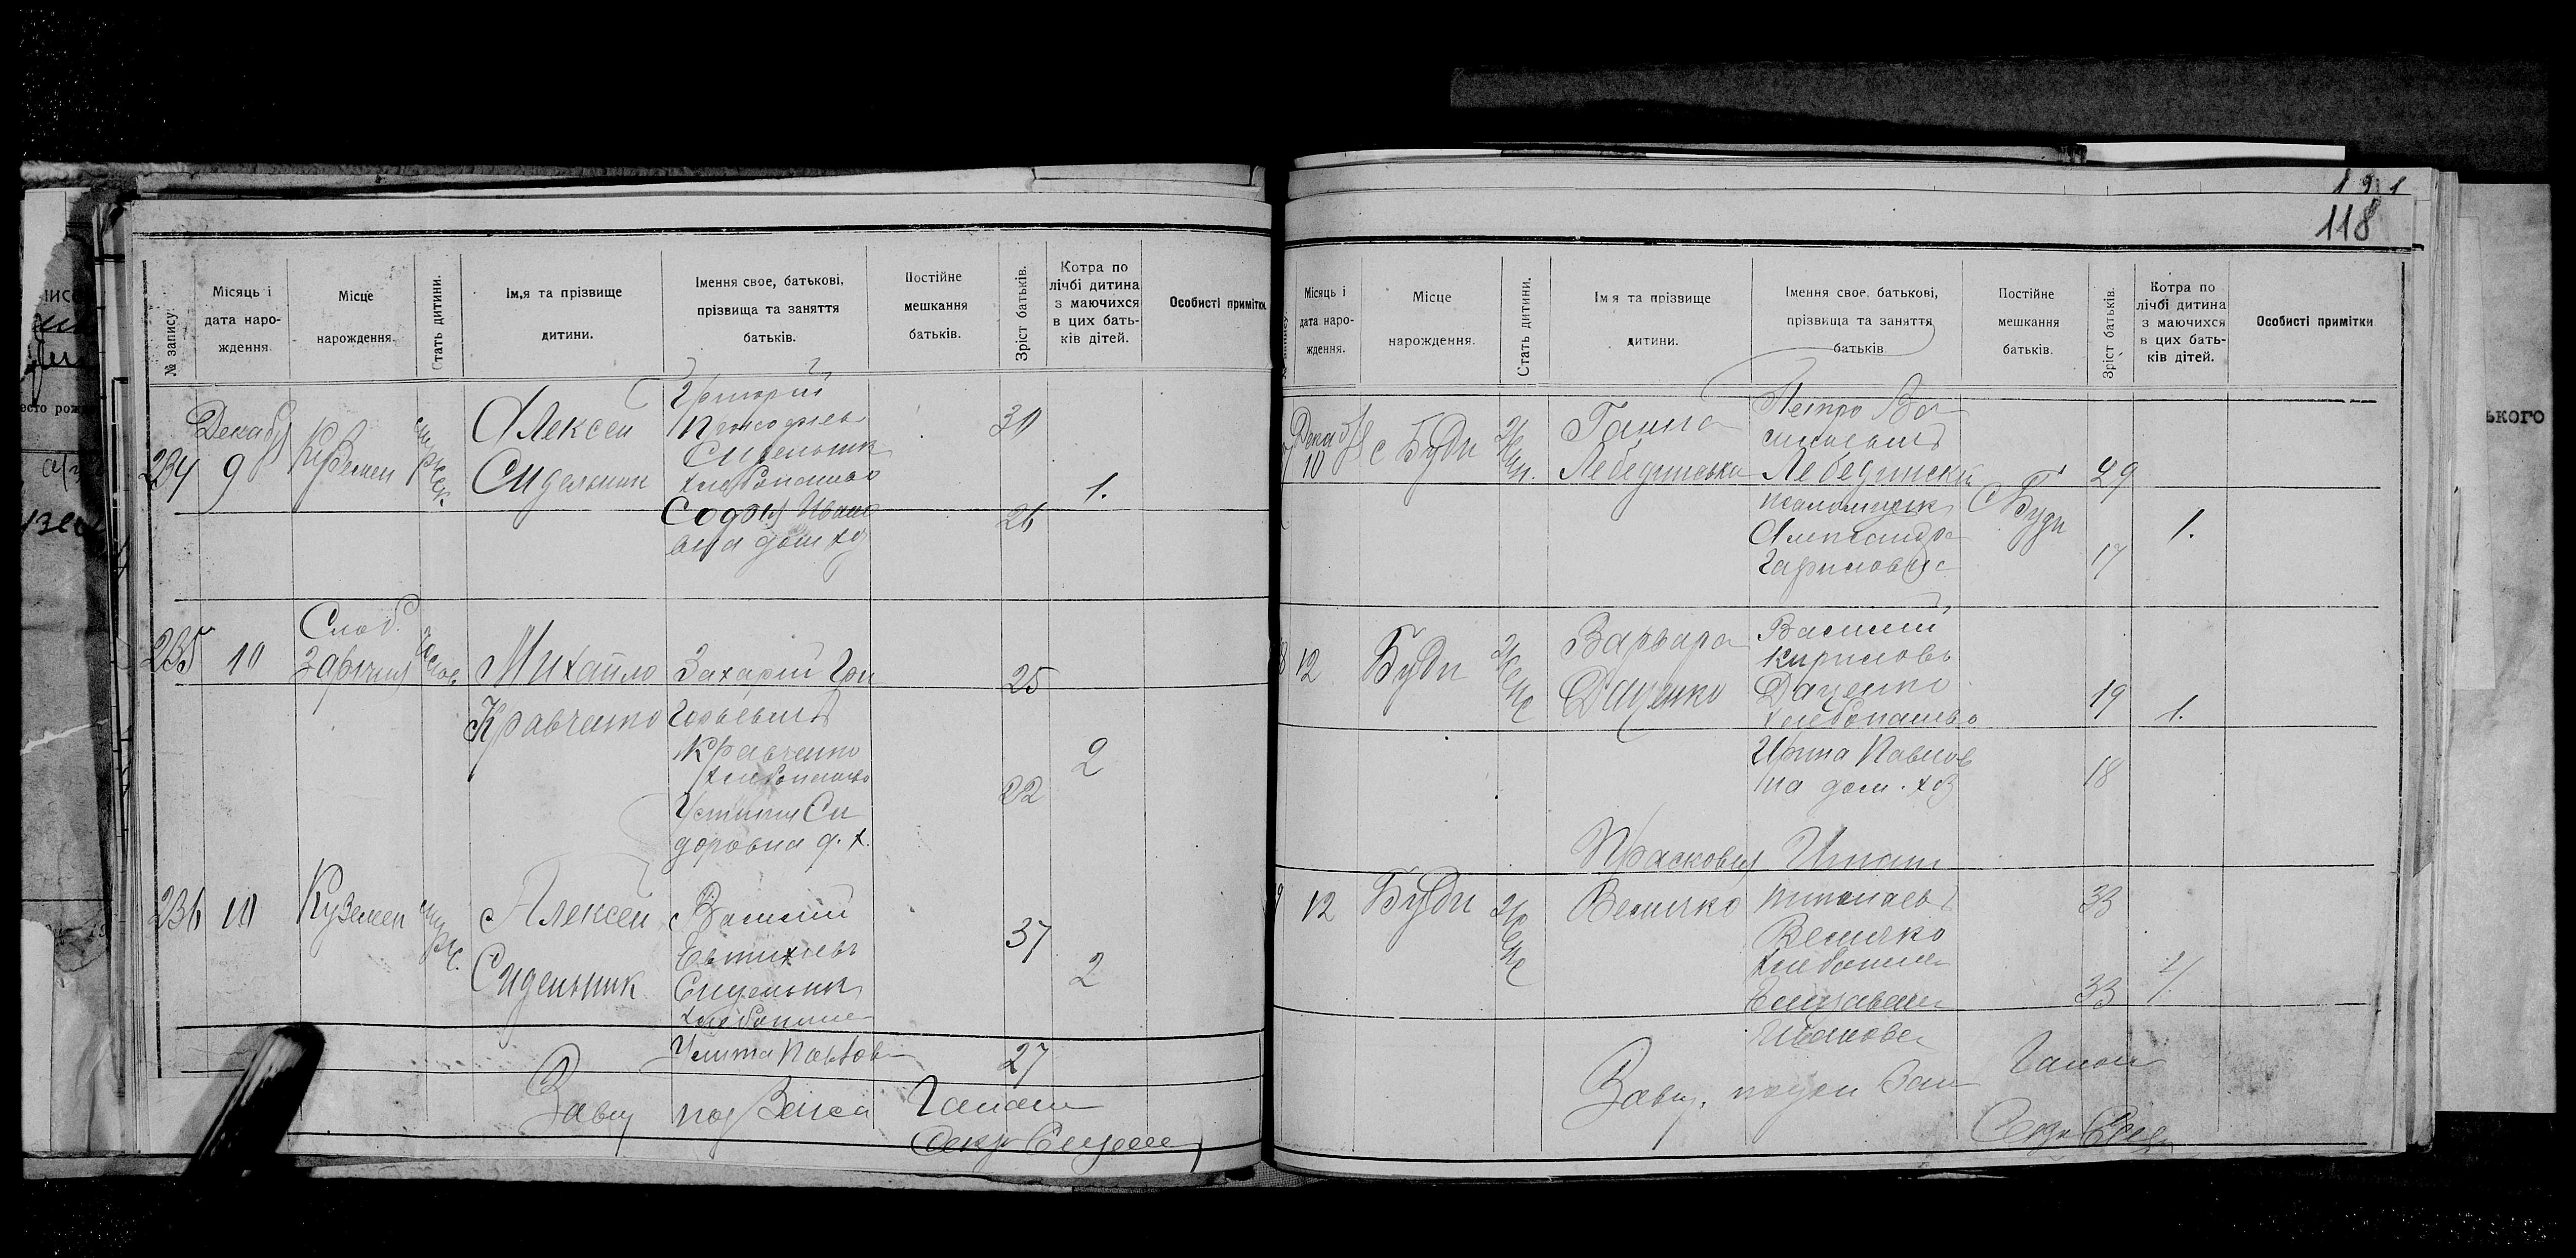 1 9 1
118
№ запису.
Місяць і
дата наро-
ждення
Місце
нарождення.
Стать дитини.
Ім,я та прізвище
дитини.
Імення своє, батькові,
прізвища та заняття
батьків.
Постійне
мешкання
батьків.
Зріст батьків.
Котра по
лічбі дитина
з маючихся
в цих бать-
ків дітей.
Особисті примітки.
234
Декабр
9
Куземен
Алексей
Сидельник
Григорий
Сидельник
хлебопашью
София Ивано
вна дом хоз
30
26
1.
235
10
Слоб.
Заречня
Михайло
Кравченко
Захарий Гри
горьевич
Кравченко
хлебопашью
Устиния Си
доровна д. х.
25
22
2
236
10
Куземен
Алексей
Сидельник
Василий
Евтихиев
Сидельник
хлебопаше
Улита Павлов
37
27
2
Завед под Загса
Секр
Місяць і
дата наро-
ждення.
Місце
нарождення.
Стать дитини.
Імя та прізвище
дитини.
Імення своє, батькові,
прізвища та заняття
батьків
Постійне
мешкання
батьків.
Зріст батьків.
Котра по
лічбі дитина
з маючихся
в цих бать-
ків дітей.
Особисті примітки
Декаб
10
с Буди
Жен.
Ганна
Лебединська
Петро Ва
сильевич
Лебединский
псаломщик
Александра
Гавриловна
С Буди
29
17
1.
12
Буди
Жене
Варвара
Даценко
Василий
Кирилов
Даценко
хлебопашью
Ирина Павлов
на дом. хоз
19
18
1.
12
Буди
Жене
Прасковия
Величко
Игнат
Николаев
Величко
хлебопаше
Елизавета
Иванова
33
33
Завед.
Секр